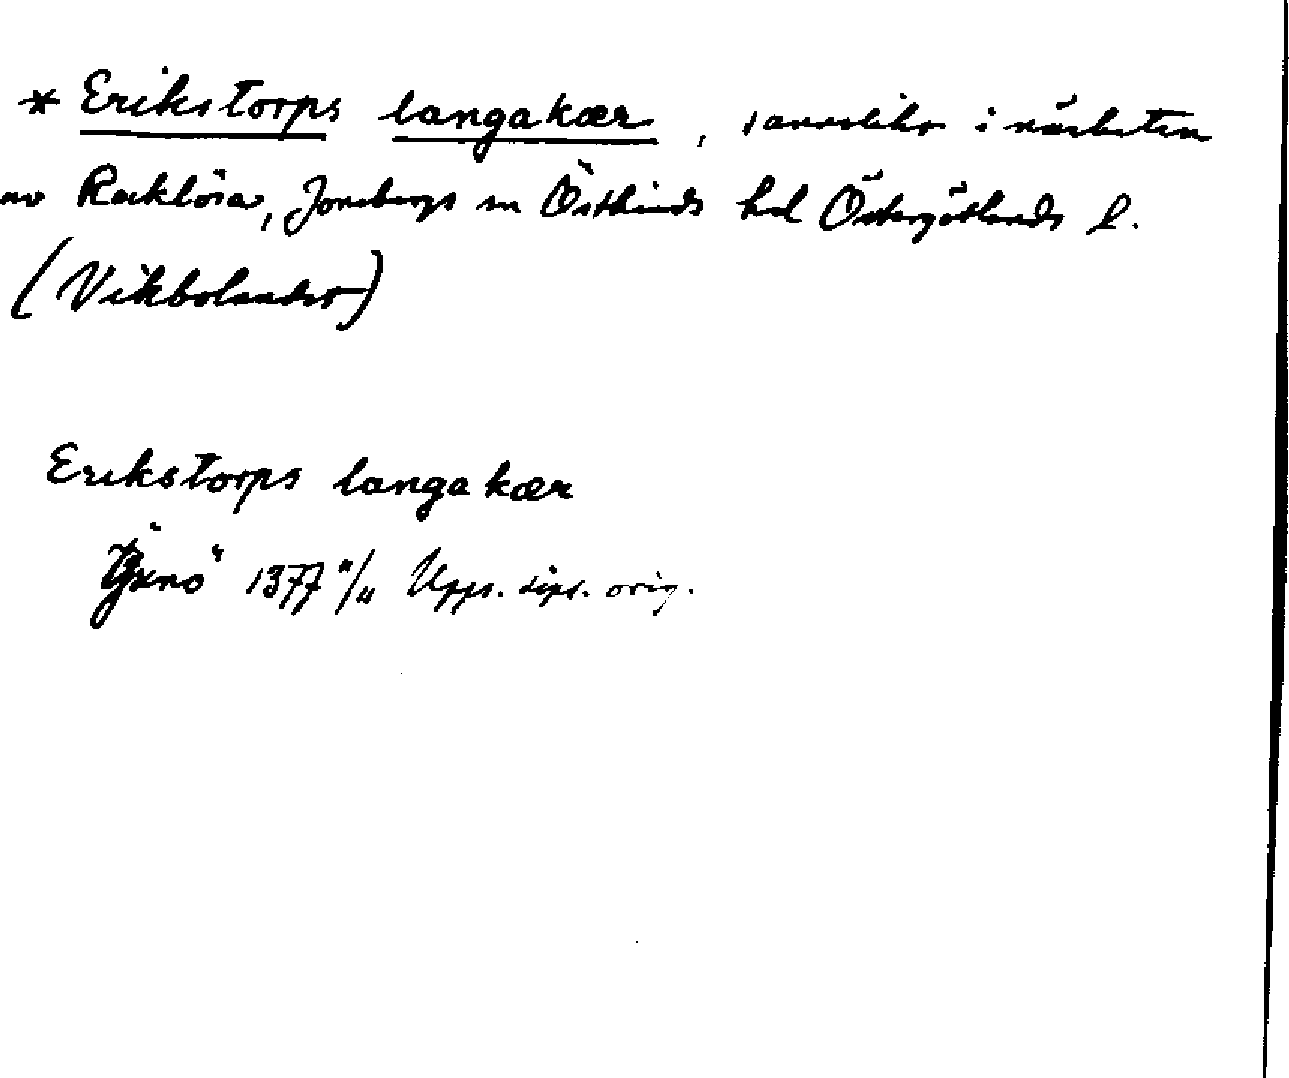 * Erikstorps langakær, sannolikt i närheten
av Reklösa, Jonsbergs sn Östkinds hd Östergötlands l.
(Vikbolandet)
Erikstorps langakær
1377 Upps. dipl. orig.